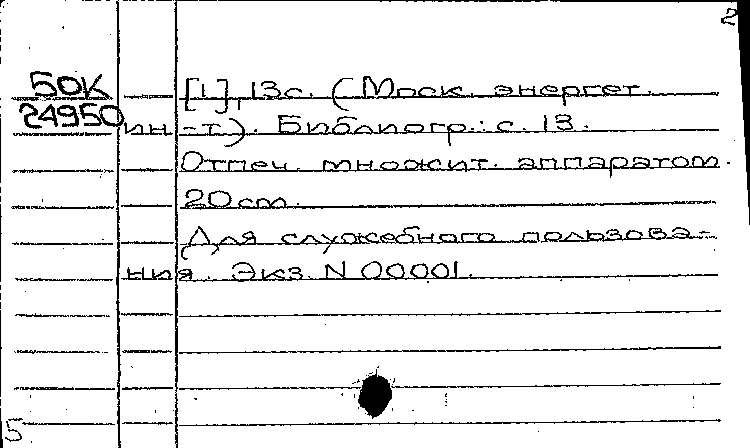 2
50К [1], 13с. (Моск. энергет.
24950 ин-т). Библиогр.: с. 13.
Отпеч. множит. аппаратом.
20 cm.
Для служебного пользова-
ния. Экз. N 00001.
5